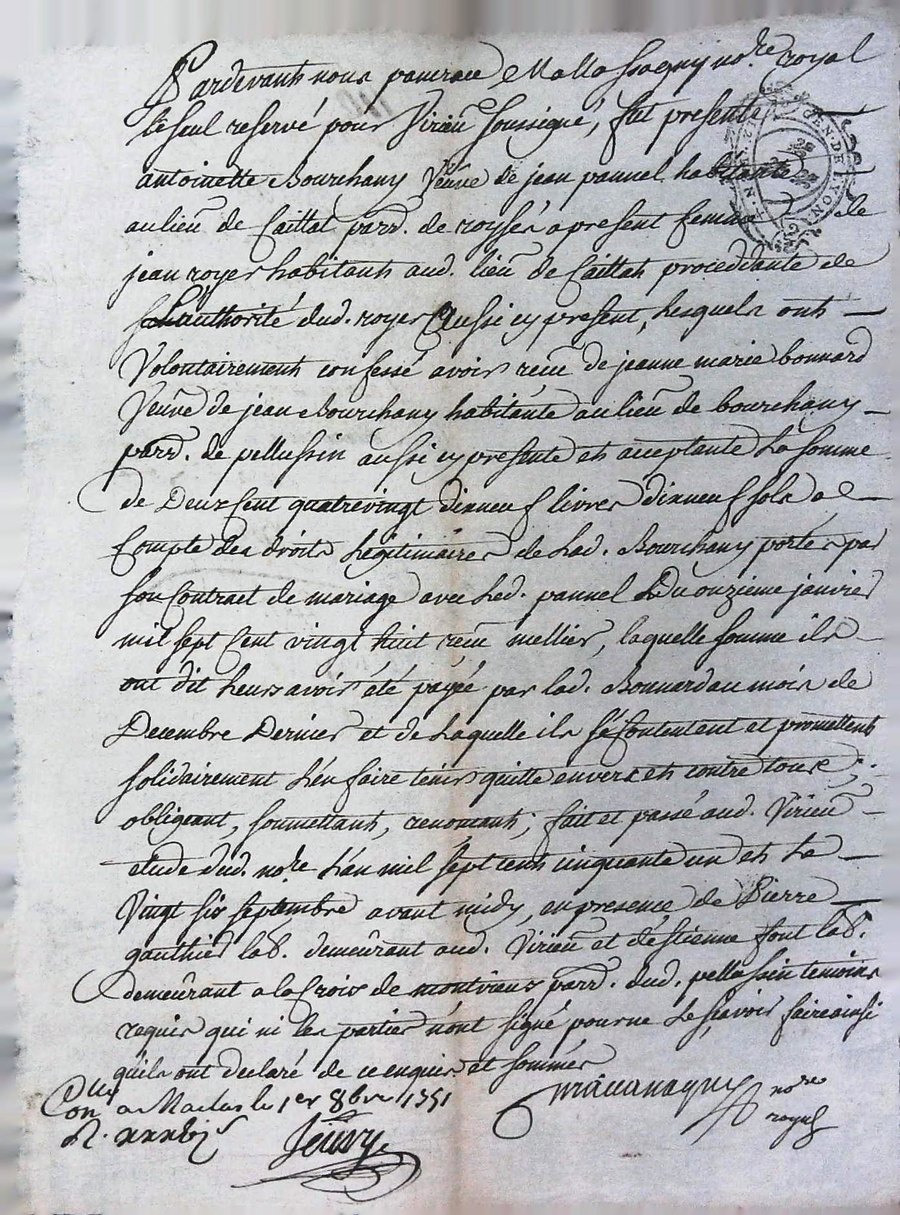 Pardevant nous pancrace Mallassagny no.re royal
le seul reservé pour Virieu soussigné, fut presente
antoinette Bourchany Veuve de jean pannel habitante
au lieu de Caillat parr. de roysés a present femme de
jean royer habitants aud. lieu de Caillat procedante de
L'authorité dud. royer aussi cy present, Lesquels ont
Volontairement confessé avoir receu de jeanne marie bonnard
Veuve de jean Bourchany habitante au lieu de bourchany
parr. de pellussin aussi cy presente et acceptante La somme
de Deux Cent quatrevingt dixneuf livres dixneuf sols a
Compte des droits Légitimaires de Lad. Bourchany portés par
son Contract de mariage avec Led. pannel Du onzieme janvier
mil sept Cent vingt huit receu mellier, laquelle somme ils
ont dit Leurs avoir été payée par lad. Bonnard au mois de
Decembre Dernier et de Laquelle ils sé Contentent et promettent
solidairement L'en faire tenir quitte envers et contre tous;
obligeant, soumettant, renonçant; fait et passé aud. Virieu
etude dud. no.re L'an mil sept cent cinquante un et Le
Vingt six septembre avant midy, en presence de Pierre
gauthier lab. demeurant aud. Virieu et d'estienne font lab.
demeurant a la Croix de montvieux parr. dud. pellussin temoins
requis qui ni les parties n'ont signé pour ne Le sçavoir faire ainsi
quils ont declaré de ce enquis et sommés
Con.lle a Maclas le 1er 8bre 1751
no.re
royal